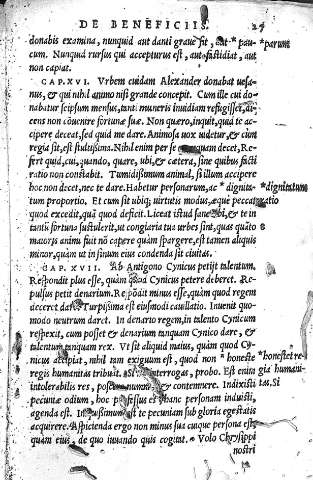 DE BENEFICIIS. 27
donabis examina, nunquid aut danti graue sit, aut * pau- * parum
cum. Nunquid rursus qui accepturus est, aut fastidiat, aut
non capiat.
CAP. XVI. Vrbem cuidam Alexander donabat uesa-
nus, & qui nihil animo nisi grande concepit. Cum ille cui do-
nabatur seipsum mensus, tanti muneris inuidiam refugisset, di-
cens non conuenire fortunæ suæ. Non quæro, inquit, quid te ac-
cipere deceat, sed quid me dare. Animosa uox uidetur, & cum
regia sit, est stultissima. Nihil enim per se quenquam decet, Re-
fert quid, cui, quando, quare, ubi, & cætera, sine quibus facti
ratio non constabit. Tumidissimum animal, si illum accipere
hoc non decet, nec te dare. Habetur personarum, ac * dignita- * dignitatum
tum proportio. Et cum sit ubiq; uirtutis modus, æque peccat ratio
quod excedit, quàm quod deficit. Liceat istud sane tibi, & te in
tantū fortuna sustulerit, ut congiaria tua urbes sint, quas quāto
maioris animi fuit nō capere quàm spargere, est tamen aliquis
minor, quàm ut in sinum eius condenda sit ciuitas.
CAP. XVII. Ab Antigono Cynicus petijt talentum.
Respondit plus esse, quàm quod Cynicus petere deberet. Re-
pulsus petit denarium. Respōdit minus esse, quàm quod regem
deceret dare. Turpissima est eiusmodi cauillatio. Inuenit quo-
modo neutrum daret. In denario regem, in talento Cynicum
respexit, cum posset & denarium tanquam Cynico dare, &
talentum tanquam rex. Vt sit aliquid maius, quàm quod Cy-
nicus accipiat, nihil tam exiguum est, quod non * honeste * honestet re
regis humanitas tribuat. * Si interrogas, probo. Est enim gia humani-
intolerabilis res, poscere nummos, & contemnere. Indixisti tas. Si
pecuniæ odium, hoc professus es, hanc personam induisti,
agenda est. Iniquissimum est te pecuniam sub gloria egestatis
acquirere. Aspicienda ergo non minus sua cuique persona est,
quàm eius, de quo iuuando quis cogitat. * Volo Chrysippi
nostri